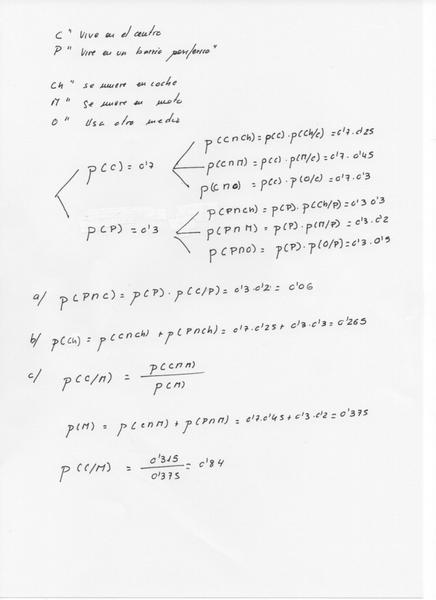 C " Vive en el centro
P " Vive en un barrio periférico "
Ch " se mueve en coche
M " Se mueve en moto
O " Usa otro medio
p(C) = 0'7
p(C∩Ch) = p(C) · p(Ch/C) = 0'7 · 0'25
p(C∩M) = p(C) · p(M/C) = 0'7 · 0'45
p(C∩O) = p(C) · p(O/C) = 0'7 · 0'3
p(P) = 0'3
p(P∩Ch) = p(P) · p(Ch/P) = 0'3 · 0'3
p(P∩M) = p(P) · p(M/P) = 0'3 · 0'2
p(P∩O) = p(P) · p(O/P) = 0'3 · 0'5
a/ p(P∩C) = p(P) · p(C/P) = 0'3 · 0'2 = 0'06
b/ p(Ch) = p(C∩Ch) + p(P∩Ch) = 0'7 · 0'25 + 0'3 · 0'3 = 0'265
c/ p(C/M) = p(C∩M) / p(M)
p(M) = p(C∩M) + p(P∩M) = 0'7 · 0'45 + 0'3 · 0'2 = 0'375
p(C/M) = 0'315 / 0'375 = 0'84